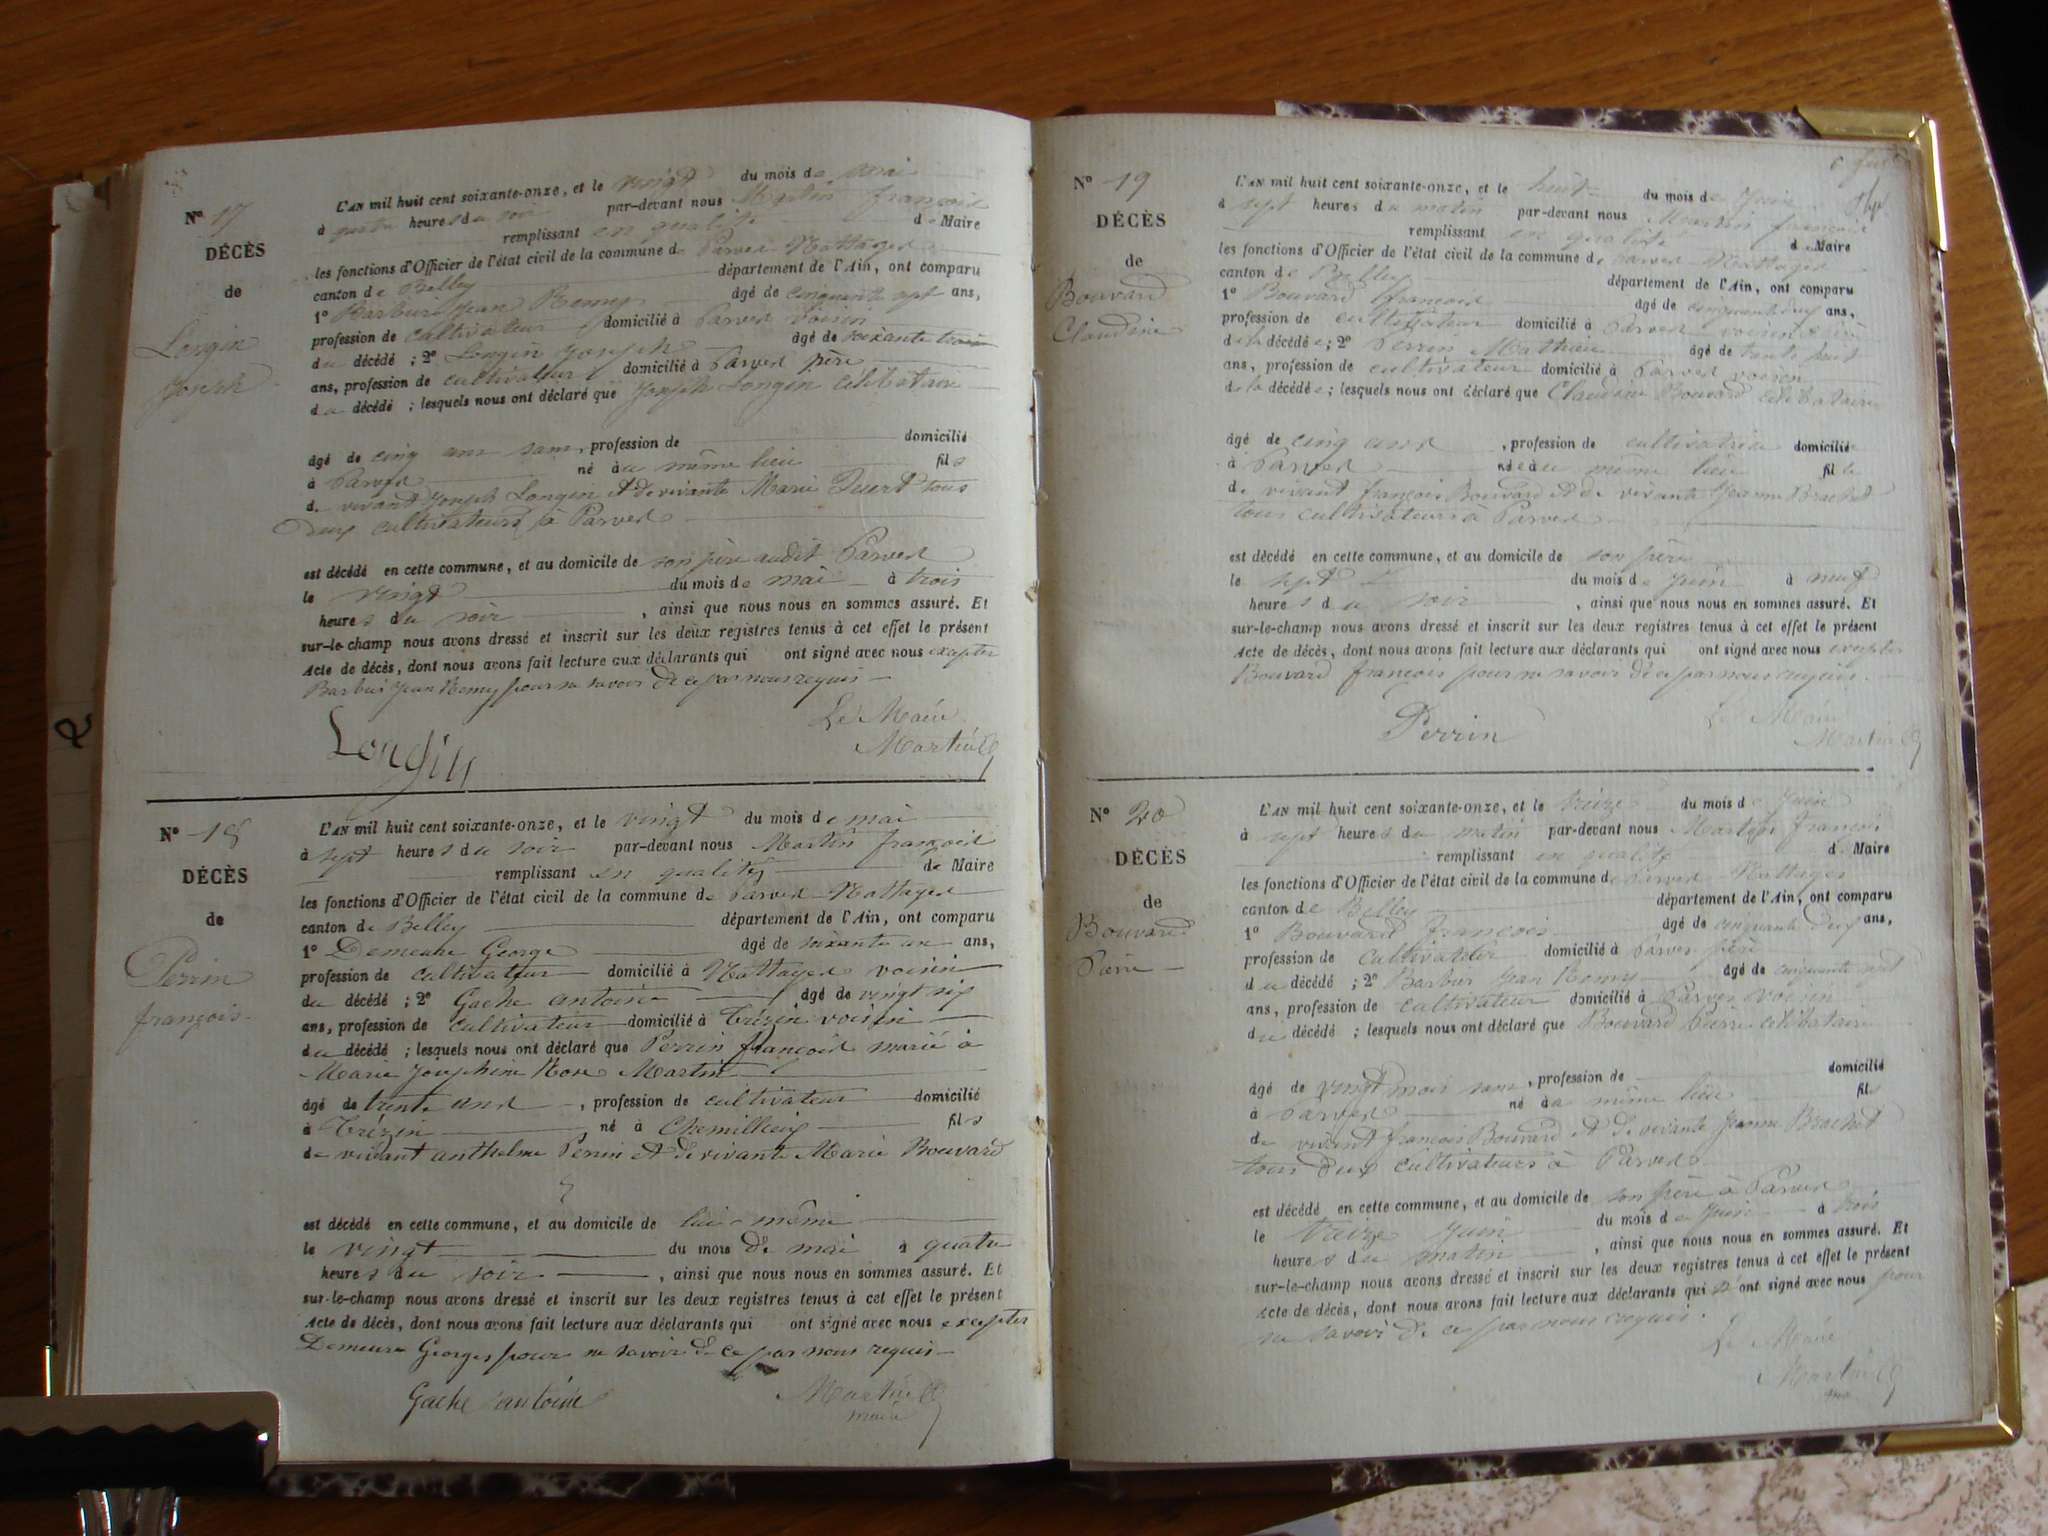 N° 17
DÉCÈS
de
Longin
Joseph
L'AN mil huit cent soixante-onze, et le vingt du mois de mai
à quatre heures du soir par-devant nous Martin françois
remplissant en qualité de Maire
les fonctions d'Officier de l'état civil de la commune de Parves Nattages
canton de Belley département de l'Ain, ont comparu
1° Barbus Jean Remy âgé de cinquante sept ans,
profession de cultivateur domicilié à Parves voisin
du décédé ; 2° Longin Joseph âgé de soixante trois
ans, profession de cultivateur domicilié à Parves père
du décédé ; lesquels nous ont déclaré que Joseph Longin célibataire
âgé de cinq ans sans, profession de domicilié
à Parves né au même lieu fils
de vivant Joseph Longin et de vivante Marie tous
deux cultivateurs à Parves
est décédé en cette commune, et au domicile de son père audit Parves
le vingt du mois de mai à trois
heures du soir , ainsi que nous nous en sommes assuré. Et
sur-le-champ nous avons dressé et inscrit sur les deux registres tenus à cet effet le présent
Acte de décès, dont nous avons fait lecture aux déclarants qui ont signé avec nous excepter
Barbus Jean Remy pour ne savoir de ce par nous requis
Le Maire
Longin Martin
N° 18
DÉCÈS
de
Perrin
françois
L'AN mil huit cent soixante-onze, et le vingt du mois de mai
à sept heures du soir par-devant nous Martin françois
remplissant en qualité de Maire
les fonctions d'Officier de l'état civil de la commune de Parves Nattages
canton de Belley département de l'Ain, ont comparu
1° Demeure George âgé de soixante un ans,
profession de cultivateur domicilié à Nattages voisin
du décédé ; 2° Gache antoine âgé de vingt six
ans, profession de cultivateur domicilié à Trézin voisin
du décédé ; lesquels nous ont déclaré que Perrin françois marié à
Marie Joséphine Rose Martin
âgé de trente ans , profession de cultivateur domicilié
à Trézin né à Chemillieu fils
de vivant anthelme Perrin et de vivante Marie Bouvard
est décédé en cette commune, et au domicile de lui-même
le vingt du mois de mai à quatre
heures du soir , ainsi que nous nous en sommes assuré. Et
sur-le-champ nous avons dressé et inscrit sur les deux registres tenus à cet effet le présent
Acte de décès, dont nous avons fait lecture aux déclarants qui ont signé avec nous excepter
Demeure Georges pour ne savoir de ce par nous requis
Gache antoine Martin
maire
N° 19
DÉCÈS
de
Bouvard
Claudine
L'AN mil huit cent soixante-onze, et le huit du mois de Juin
à sept heures du matin par-devant nous Martin françois
remplissant en qualité de Maire
les fonctions d'Officier de l'état civil de la commune de Parves Nattages
canton de Belley département de l'Ain, ont comparu
1° Bouvard françois âgé de cinquante deux ans,
profession de cultivateur domicilié à Parves
de la décédée ; 2° Perrin Mathieu âgé de trente huit
ans, profession de cultivateur domicilié à Parves voisin
de la décédée ; lesquels nous ont déclaré que Claudine Bouvard célibataire
âgé de cinq ans , profession de cultivatrice domicilié
à Parves née au même lieu fille
de vivant françois Bouvard et de vivante Jeanne Brachet
tous cultivateurs à Parves
est décédé en cette commune, et au domicile de son père
le sept du mois de Juin à neuf
heures du soir , ainsi que nous nous en sommes assuré. Et
sur-le-champ nous avons dressé et inscrit sur les deux registres tenus à cet effet le présent
Acte de décès, dont nous avons fait lecture aux déclarants qui ont signé avec nous excepter
Bouvard françois pour ne savoir de ce par nous requis
Le Maire
Perrin Martin
N° 20
DÉCÈS
de
Bouvard
Pierre
L'AN mil huit cent soixante-onze, et le treize du mois de Juin
à sept heures du matin par-devant nous Martin françois
remplissant en qualité de Maire
les fonctions d'Officier de l'état civil de la commune de Parves Nattages
canton de Belley département de l'Ain, ont comparu
1° Bouvard françois âgé de cinquante deux ans,
profession de cultivateur domicilié à Parves père
du décédé ; 2° Barbus Jean Remy âgé de cinquante sept
ans, profession de cultivateur domicilié à Parves voisin
du décédé ; lesquels nous ont déclaré que Bouvard Pierre célibataire
âgé de vingt mois sans, profession de domicilié
à Parves né au même lieu fils
de vivant françois Bouvard et de vivante Jeanne Brachet
tous deux cultivateurs à Parves
est décédé en cette commune, et au domicile de son père à Parves
le treize Juin du mois de Juin à trois
heures du matin , ainsi que nous nous en sommes assuré. Et
sur-le-champ nous avons dressé et inscrit sur les deux registres tenus à cet effet le présent
Acte de décès, dont nous avons fait lecture aux déclarants qui n'ont signé avec nous pour
ne savoir de ce par nous requis.
Le Maire
Martin